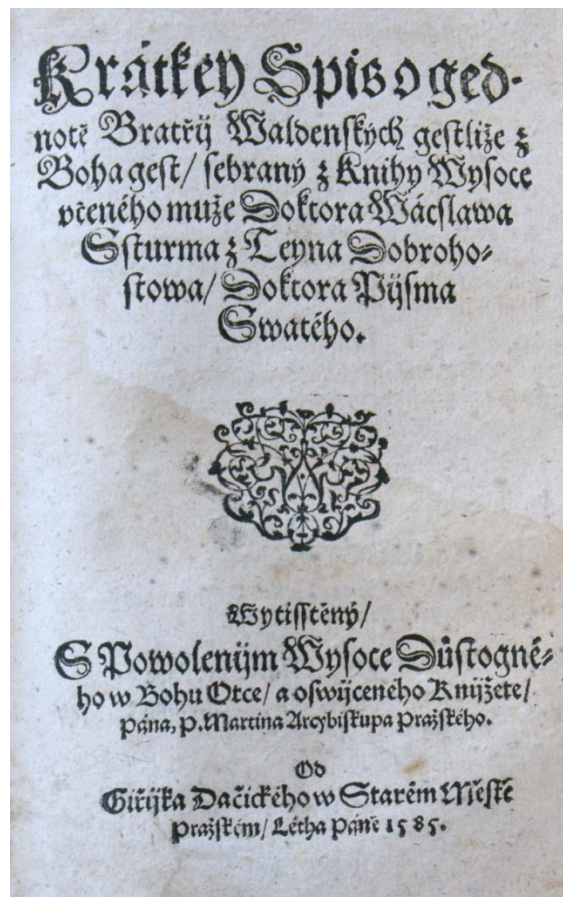 Krátkey Spis o ged-
notě Bratřij Waldenských gestliže z
Boha gest/ sebraný z Knihy Wysoce
včeného muže Doktora Wácslawa
Ssturma z Teyna Dobroho-
stowa/ Doktora Pijsma
Swatého.
Wytisstěný/
S Powolenijm Wysoce Důstogné-
ho w Bohu Otce/ a oswijceného Knijžete/
Pána, P. Martina Arcybiskupa Pražského.
Od
Giřijka Dačického w Starém Městě
Pražském/ Létha Páně 1585.